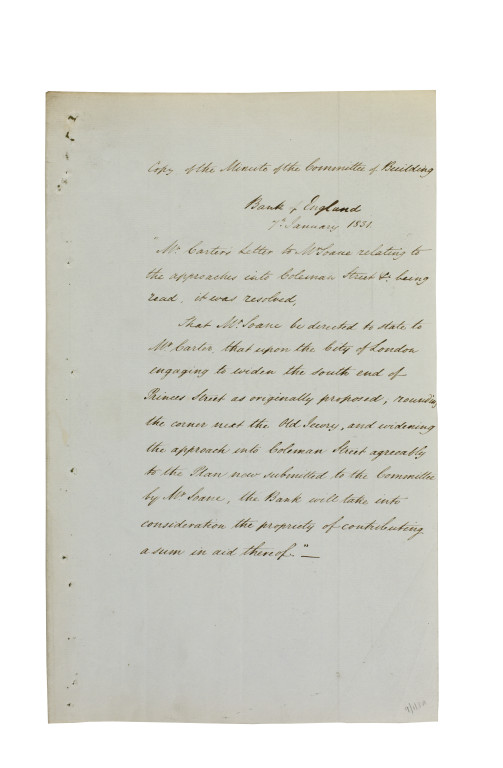 Copy of the Minute of the Committee of Building
Bank of England
7th January 1831.
"Mr. Carter's Letter to Mr. Soane relating to
the approaches into Coleman Street &c. being
read, it was resolved,
That Mr. Soane be directed to state to
Mr. Carter, that upon the City of London
engaging to widen the south end of
Princes Street as originally proposed, rounding
the corner next the Old Jewry, and widening
the approach into Coleman Street agreeably
to the Plan now submitted to the Committee
by Mr. Soane, the Bank will take into
consideration the propriety of contributing
a sum in aid thereof."—